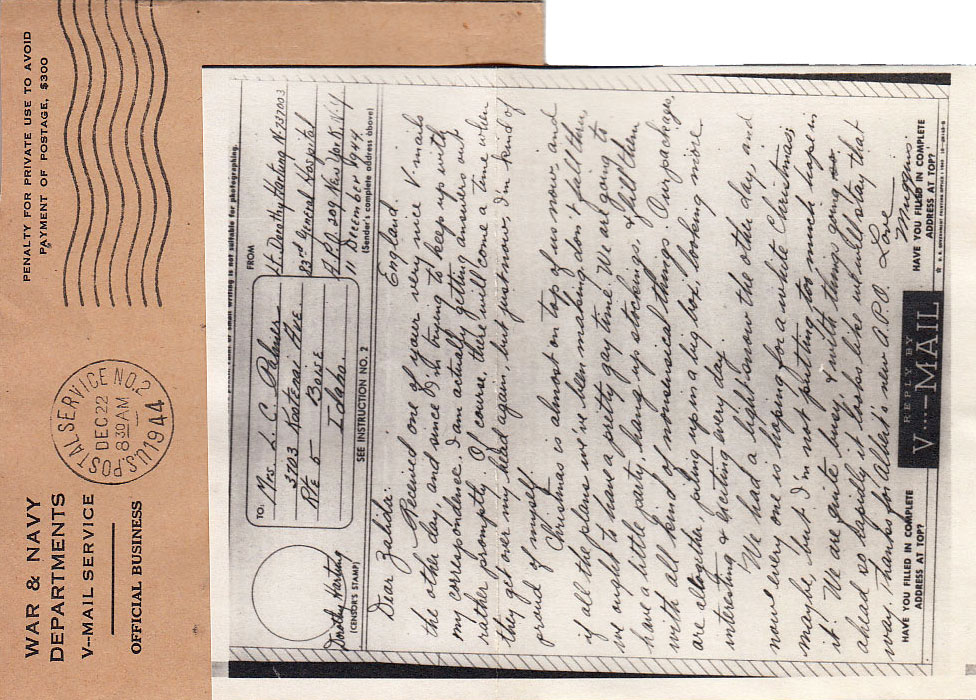 WAR & NAVY
DEPARTMENTS
V--MAIL SERVICE
OFFICIAL BUSINESS
U.S. POSTAL SERVICE NO. 2
DEC 22
8 30 AM
1944
PENALTY FOR PRIVATE USE TO AVOID
PAYMENT OF POSTAGE, $300
writing is not suitable for photographing.
TO:
Mrs. L. C. Palmer
3703 Kootenai Ave
Rte 5 Boise
Idaho.
SEE INSTRUCTION NO. 2
FROM
Lt. Dorothy Harting N-737003
23rd General Hospital
A.P.O. 209 New York, N.Y
11 December 1944
(Sender's complete address above)
Dorothy Harting
(CENSOR'S STAMP)
England.
Dear Zadidia:
Received one of your very nice V-mails
the other day, and since I'm trying to keep up with
my correspondence, I am actually getting answers out
rather promptly. Of course, there will come a time when
they get over my head again, but just now, I'm kind of
proud of myself.
Christmas is almost on top of us now, and
if all the plans we've been making don't fall thru,
we ought to have a pretty gay time. We are going to
have a little party, hang up stockings, & fill them
with all kind of nonsensical things. Our packages,
are altogether, piling up in a big box, looking more
interesting & inviting every day.
We had a light snow the other day, and
now every one is hoping for a white Christmas,
maybe, but I'm not putting too much hope in
it. We are quite busy, & with things going
ahead so rapidly it looks like we will stay that
way. Thanks for Albert's new A.P.O.
Love
Muggins
HAVE YOU FILLED IN COMPLETE
ADDRESS AT TOP?
REPLY BY
V···-MAIL
HAVE YOU FILLED IN COMPLETE
ADDRESS AT TOP?